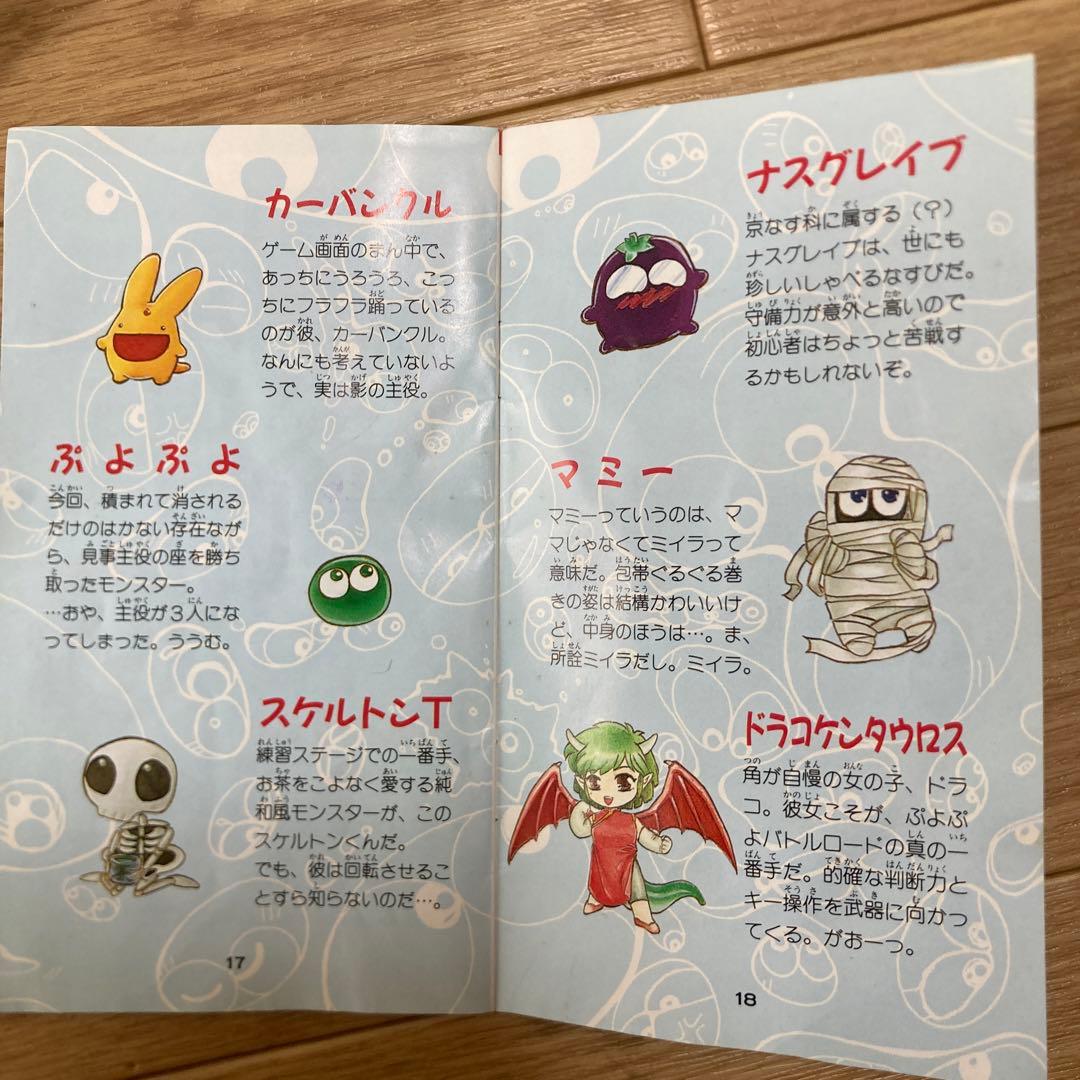 カーバンクル
ゲーム画面のまん中で、
あっちにうろうろ、こっ
ちにフラフラ踊っている
のが彼、カーバンクル。
なんにも考えていないよ
うで、実は影の主役。
ぷよぷよ
今回、積まれて消される
だけのはかない存在なが
ら、見事主役の座を勝ち
取ったモンスター。
…おや、主役が3人にな
ってしまった。ううむ。
スケルトンT
練習ステージでの一番手、
お茶をこよなく愛する純
和風モンスターが、この
スケルトンくんだ。
でも、彼は回転させるこ
とすら知らないのだ…。
17
ナスグレイブ
京なす科に属する（？）
ナスグレイブは、世にも
珍しいしゃべるなすびだ。
守備力が意外と高いので
初心者はちょっと苦戦す
るかもしれないぞ。
マミー
マミーっていうのは、マ
マじゃなくてミイラって
意味だ。包帯ぐるぐる巻
きの姿は結構かわいいけ
ど、中身のほうは…。ま、
所詮ミイラだし。ミイラ。
ドラコケンタウロス
角が自慢の女の子、ドラ
コ。彼女こそが、ぷよぷ
よバトルロードの真の一
番手だ。的確な判断力と
キー操作を武器に向かっ
てくる。がおーっ。
18